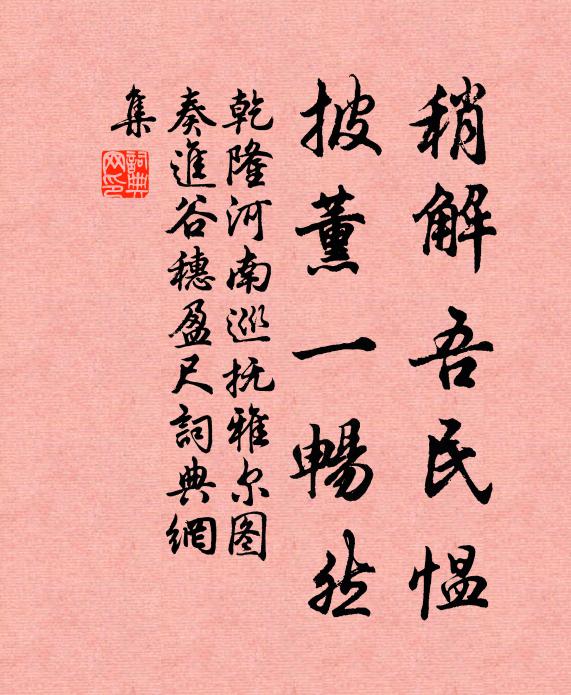 稍解吾民愠
披薰一暢然
乾隆河南巡抚雅尔图
奏進谷穗盈尺詞典網
集
詞典网印